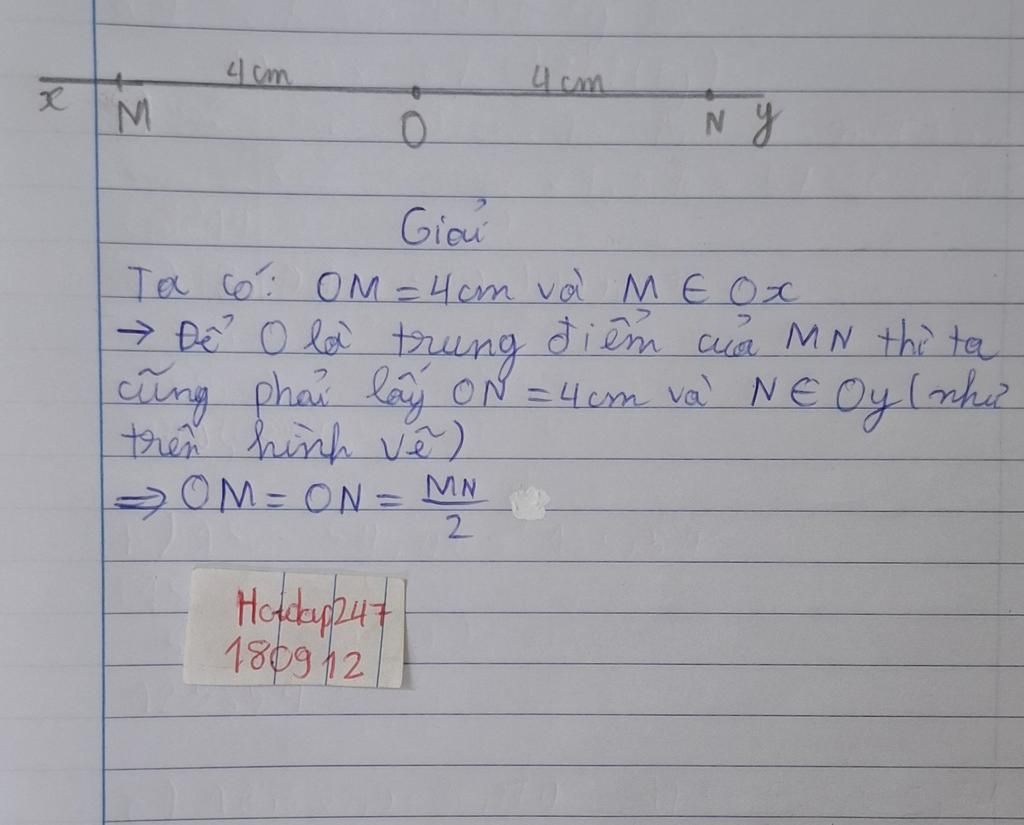 4cm 4cm
x M O N y
Giải
Ta có: OM = 4cm và M ∈ Ox
→ Để O là trung điểm của MN thì ta
cũng phải lấy ON = 4cm và N ∈ Oy (như
trên hình vẽ)
⇒ OM = ON = MN/2
Hoidap247
180912